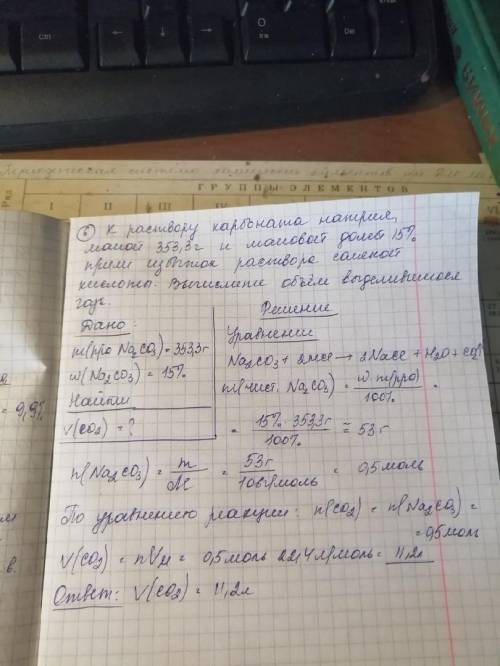 Ctrl
Ins
Del
Ряд
ГРУППЫ ЭЛЕМЕНТОВ
I
II
III
IV
6 К раствору карбоната натрия,
массой 353,3г и массовой долей 15%
прили избыток раствора соляной
кислоты. Вычислите объём выделившегося
газа.
Дано:
m(рра Na2CO3)=353,3г
ω(Na2CO3)=15%
Найти
V(CO2)=?
Решение
Уравнение
Na2CO3 + 2HCl → 2NaCl + H2O + CO2↑
m(чист. Na2CO3) = ω·m(рра) / 100% =
= 15%·353,3г / 100% ≈ 53г
n(Na2CO3) = m / M = 53г / 106г/моль = 0,5моль
По уравнению реакции: n(CO2) = n(Na2CO3) =
= 0,5моль
V(CO2) = nVм = 0,5моль 22,4л/моль = 11,2л
Ответ: V(CO2) = 11,2л
= 9,9%
в.